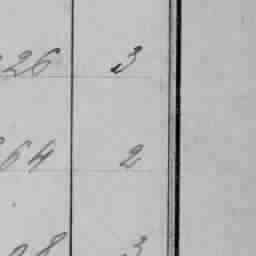 26 3
64 2
28 3